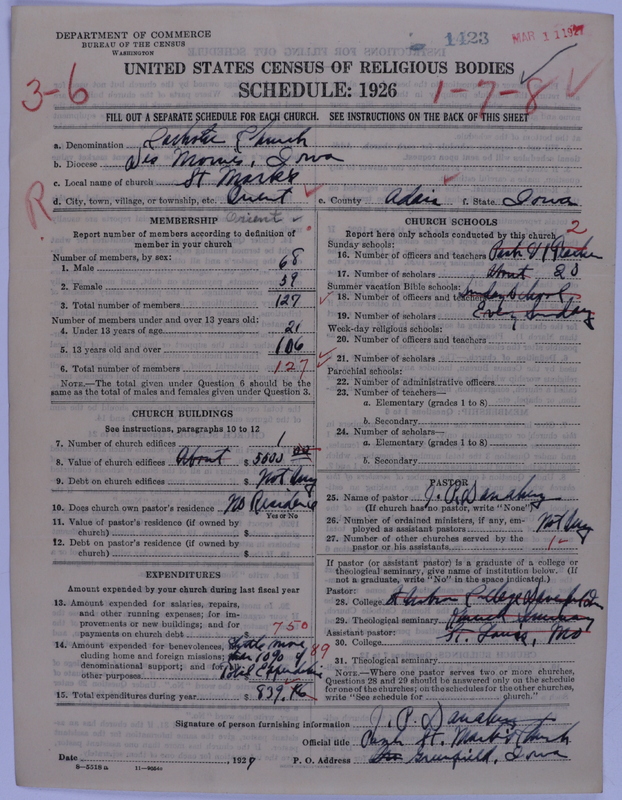 DEPARTMENT OF COMMERCE
BUREAU OF THE CENSUS
WASHINGTON
1423
MAR 11 1927
UNITED STATES CENSUS OF RELIGIOUS BODIES
SCHEDULE: 1926
3-6
1-7-8
FILL OUT A SEPARATE SCHEDULE FOR EACH CHURCH. SEE INSTRUCTIONS ON THE BACK OF THIS SHEET
a. Denomination Catholic Church
b. Diocese Des Moines, Iowa
c. Local name of church St Marks
d. City, town, village, or township, etc. Orient e. County Adair f. State Iowa
R
MEMBERSHIP Orient
Report number of members according to definition of
member in your church
Number of members, by sex:
1. Male 68
2. Female 59
3. Total number of members 127
Number of members under and over 13 years old:
4. Under 13 years of age 21
5. 13 years old and over 106
6. Total number of members 127
NOTE.—The total given under Question 6 should be the
same as the total of males and females given under Question 3.
CHURCH BUILDINGS
See instructions, paragraphs 10 to 12
7. Number of church edifices 1
8. Value of church edifices About $ 5000 00
9. Debt on church edifices $ Not Any
10. Does church own pastor's residence No Residence
Yes or No
11. Value of pastor's residence (if owned by
church) $
12. Debt on pastor's residence (if owned by
church) $
EXPENDITURES
Amount expended by your church during last fiscal year
13. Amount expended for salaries, repairs,
and other running expenses; for im-
provements or new buildings; and for
payments on church debt $ 750
14. Amount expended for benevolences, little more
cluding home and foreign missions; than 10% of 89
denominational support; and for all
other purposes Total Expenditure
15. Total expenditures during year $ 839.16
CHURCH SCHOOLS
Report here only schools conducted by this church
Sunday schools: 2
16. Number of officers and teachers Pastor & 1 Teacher
17. Number of scholars About 20
Summer vacation Bible schools:
18. Number of officers and teachers Sunday School
19. Number of scholars Every Sunday
Week-day religious schools:
20. Number of officers and teachers
21. Number of scholars
Parochial schools:
22. Number of administrative officers
23. Number of teachers—
a. Elementary (grades 1 to 8)
b. Secondary
24. Number of scholars—
a. Elementary (grades 1 to 8)
b. Secondary
PASTOR
25. Name of pastor J. P. Danahey
(If church has no pastor, write "None")
26. Number of ordained ministers, if any, em-
ployed as assistant pastors Not Any
27. Number of other churches served by the
pastor or his assistants 1
If pastor (or assistant pastor) is a graduate of a college or
theological seminary, give name of institution below. (If
not a graduate, write "No" in the space indicated.)
Pastor:
28. College St Ambrose College Davenport
29. Theological seminary Kenrick Seminary
Assistant pastor: St. Louis, Mo
30. College
31. Theological seminary
NOTE.—Where one pastor serves two or more churches,
Questions 28 and 29 should be answered only on the schedule
for one of the churches; on the schedules for the other churches,
write "See schedule for church."
Signature of person furnishing information J. P. Danahey
Official title St. Marks Church
Date , 192 P. O. Address Greenfield, Iowa
8—5518 a